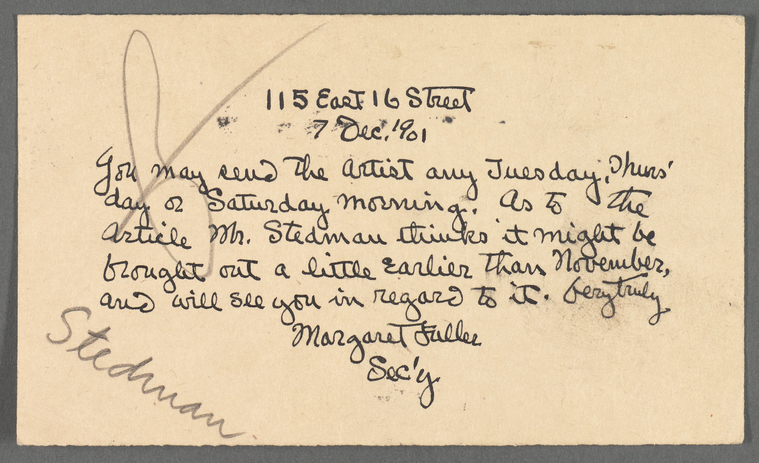 115 East 16 Street
7 Dec. 1901
You may send the Artist any Tuesday, Thurs'
day or Saturday morning. As to the
Article Mr. Stedman thinks it might be
brought out a little earlier than November,
and will see you in regard to it. Very truly
Margaret Fuller
Sec'y
Stedman